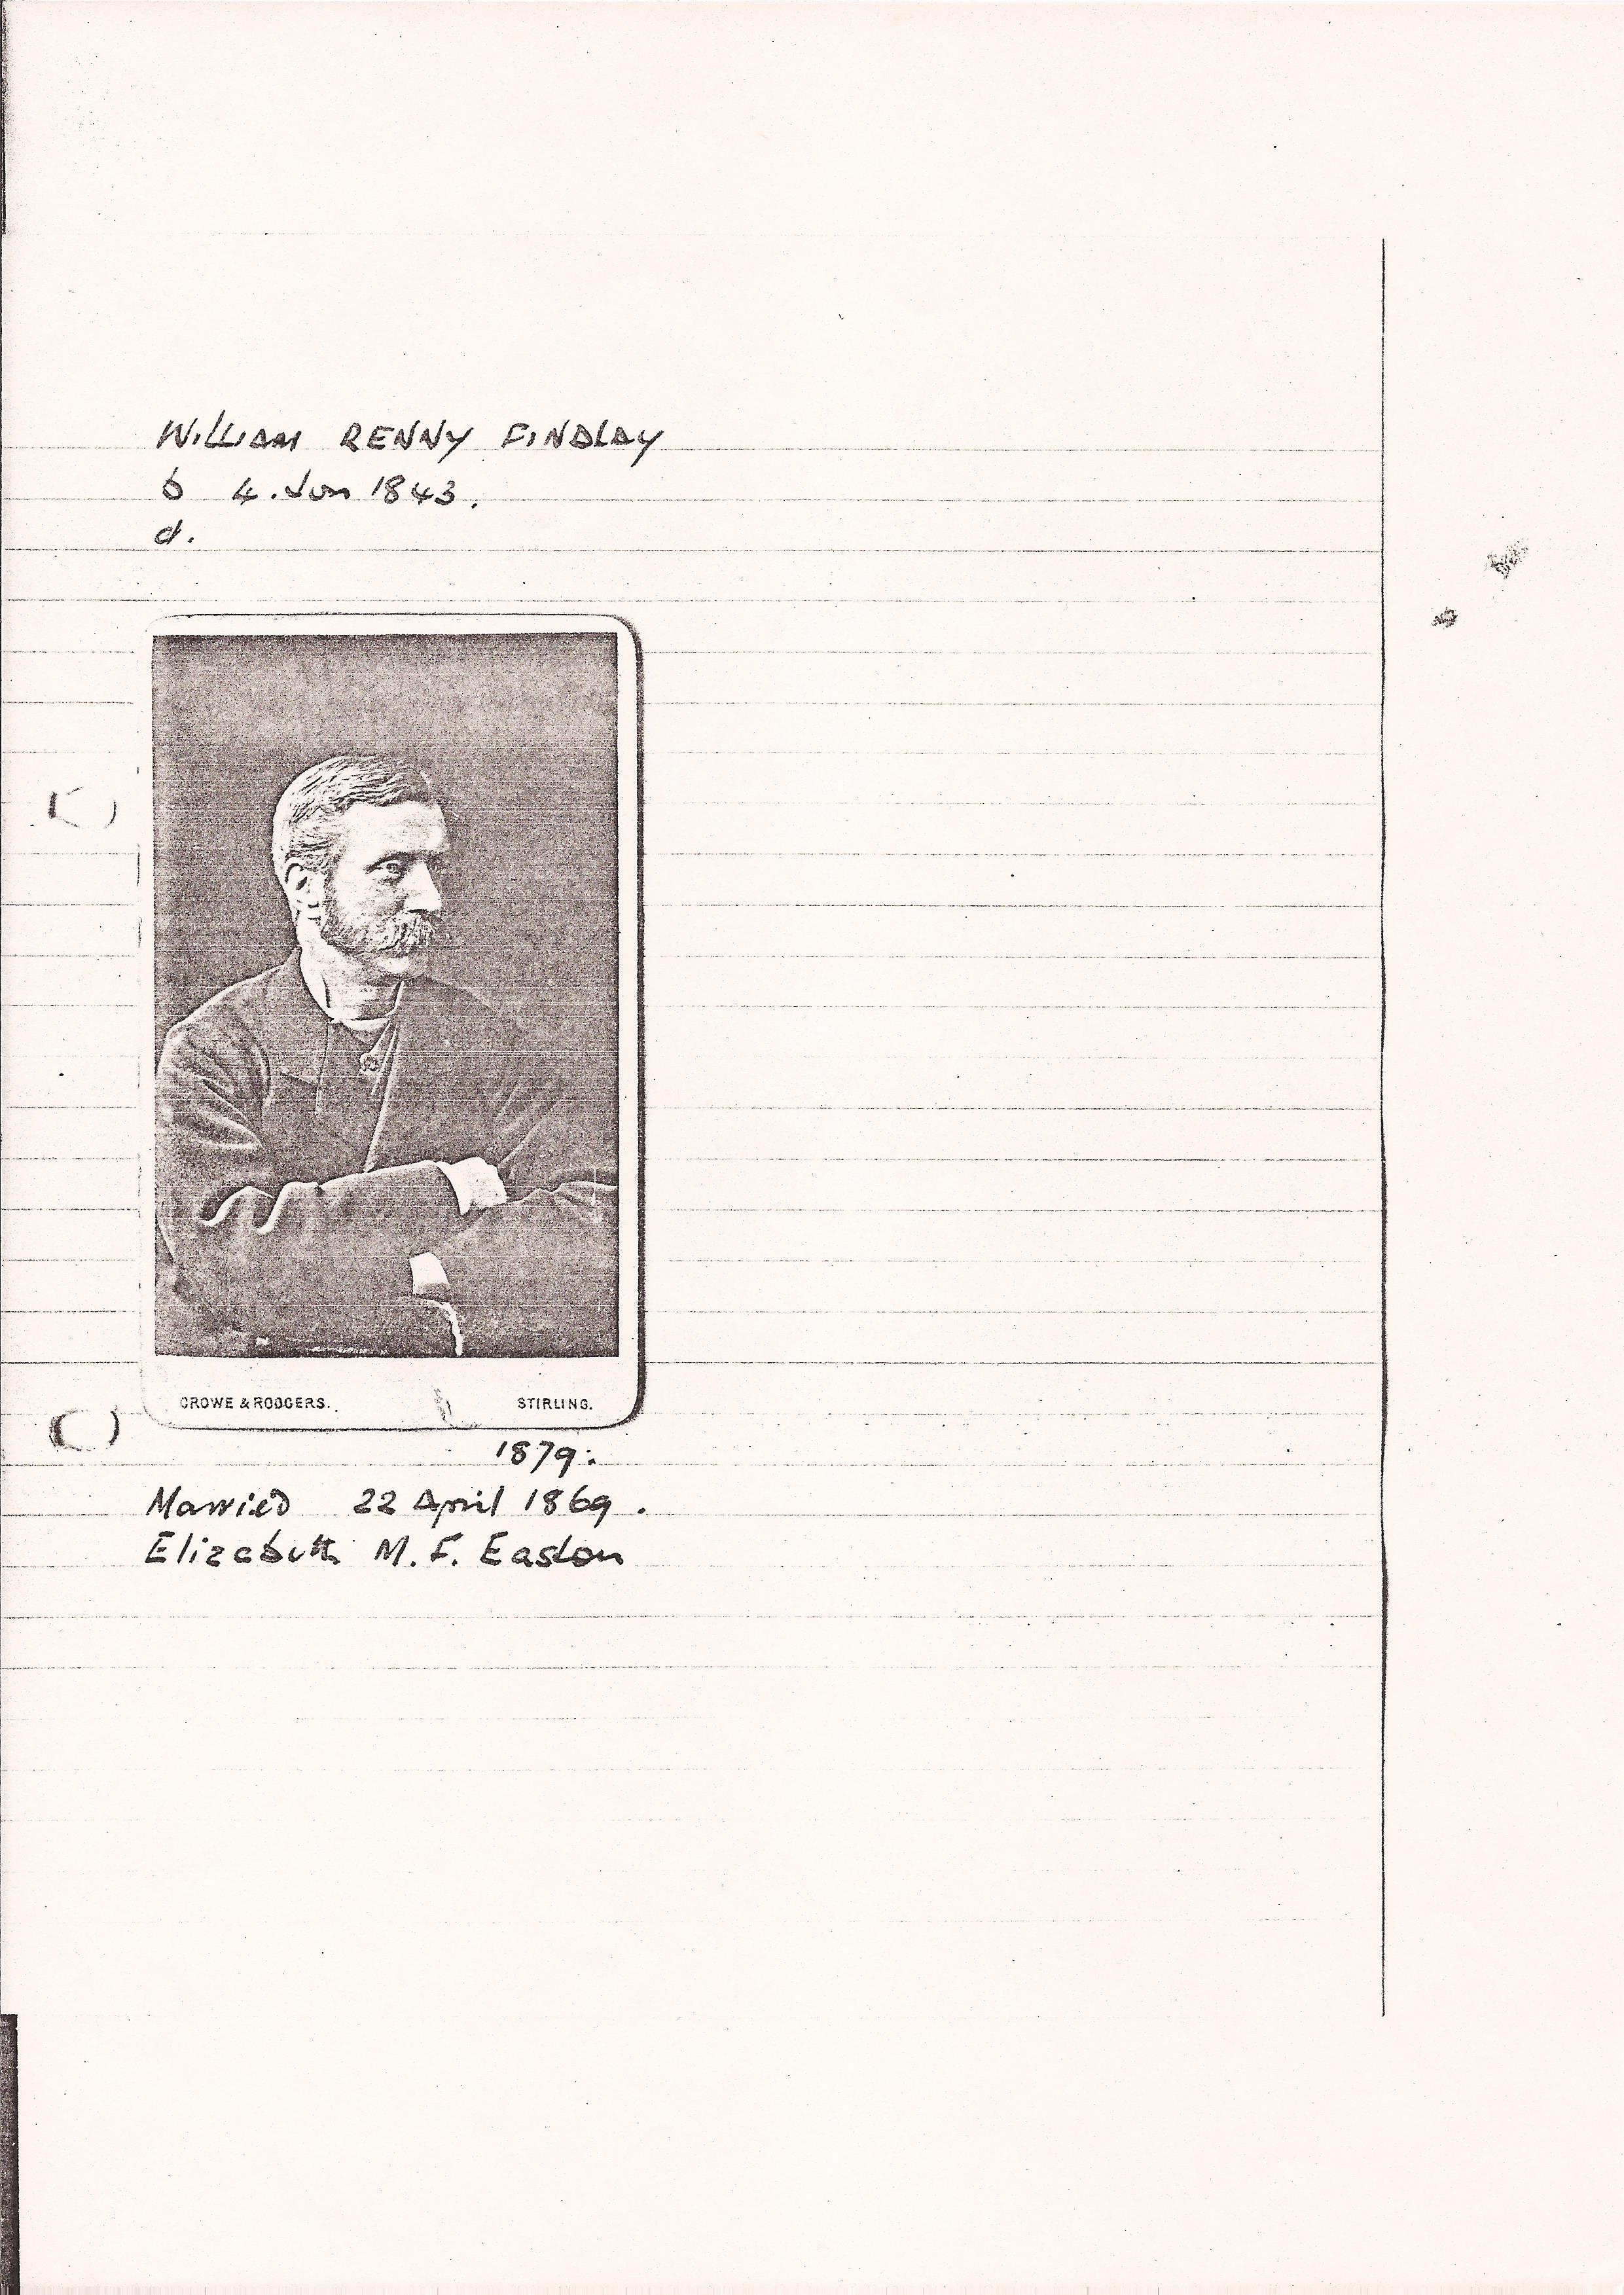 WILLIAM RENNY FINDLAY
b 4. Jun 1843.
d.
CROWE & RODGERS. STIRLING.
1879.
Married 22 April 1869.
Elizabeth M. F. Easton